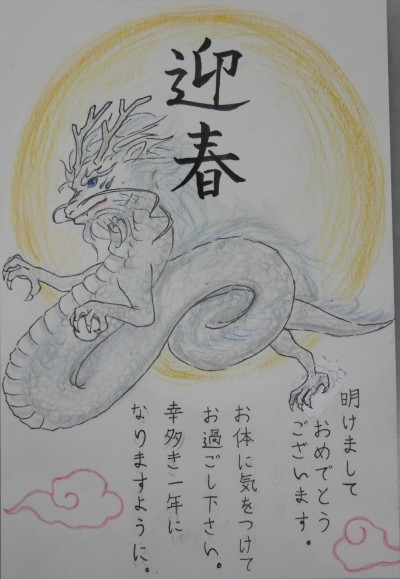 迎春
明けまして
おめでとう
ございます。
お体に気をつけて
お過ごし下さい。
幸多き一年に
なりますように。